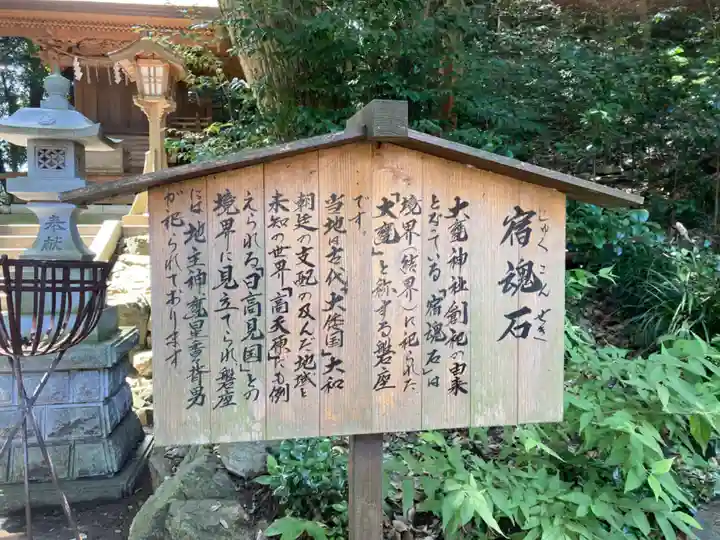 宿魂石
しゅくこんせき
大甕神社創祀の由来
となっている「宿魂石」は
境界（結界）に祀られた
「大甕」と称する磐座
です。
当地は古代「大倭国」大和
朝廷の支配の及んだ地域と
未知の世界「高天原」にも例
えられる「日高見国」との
境界に見立てられ磐座
には地主神甕星香背男
が祀られております
奉献